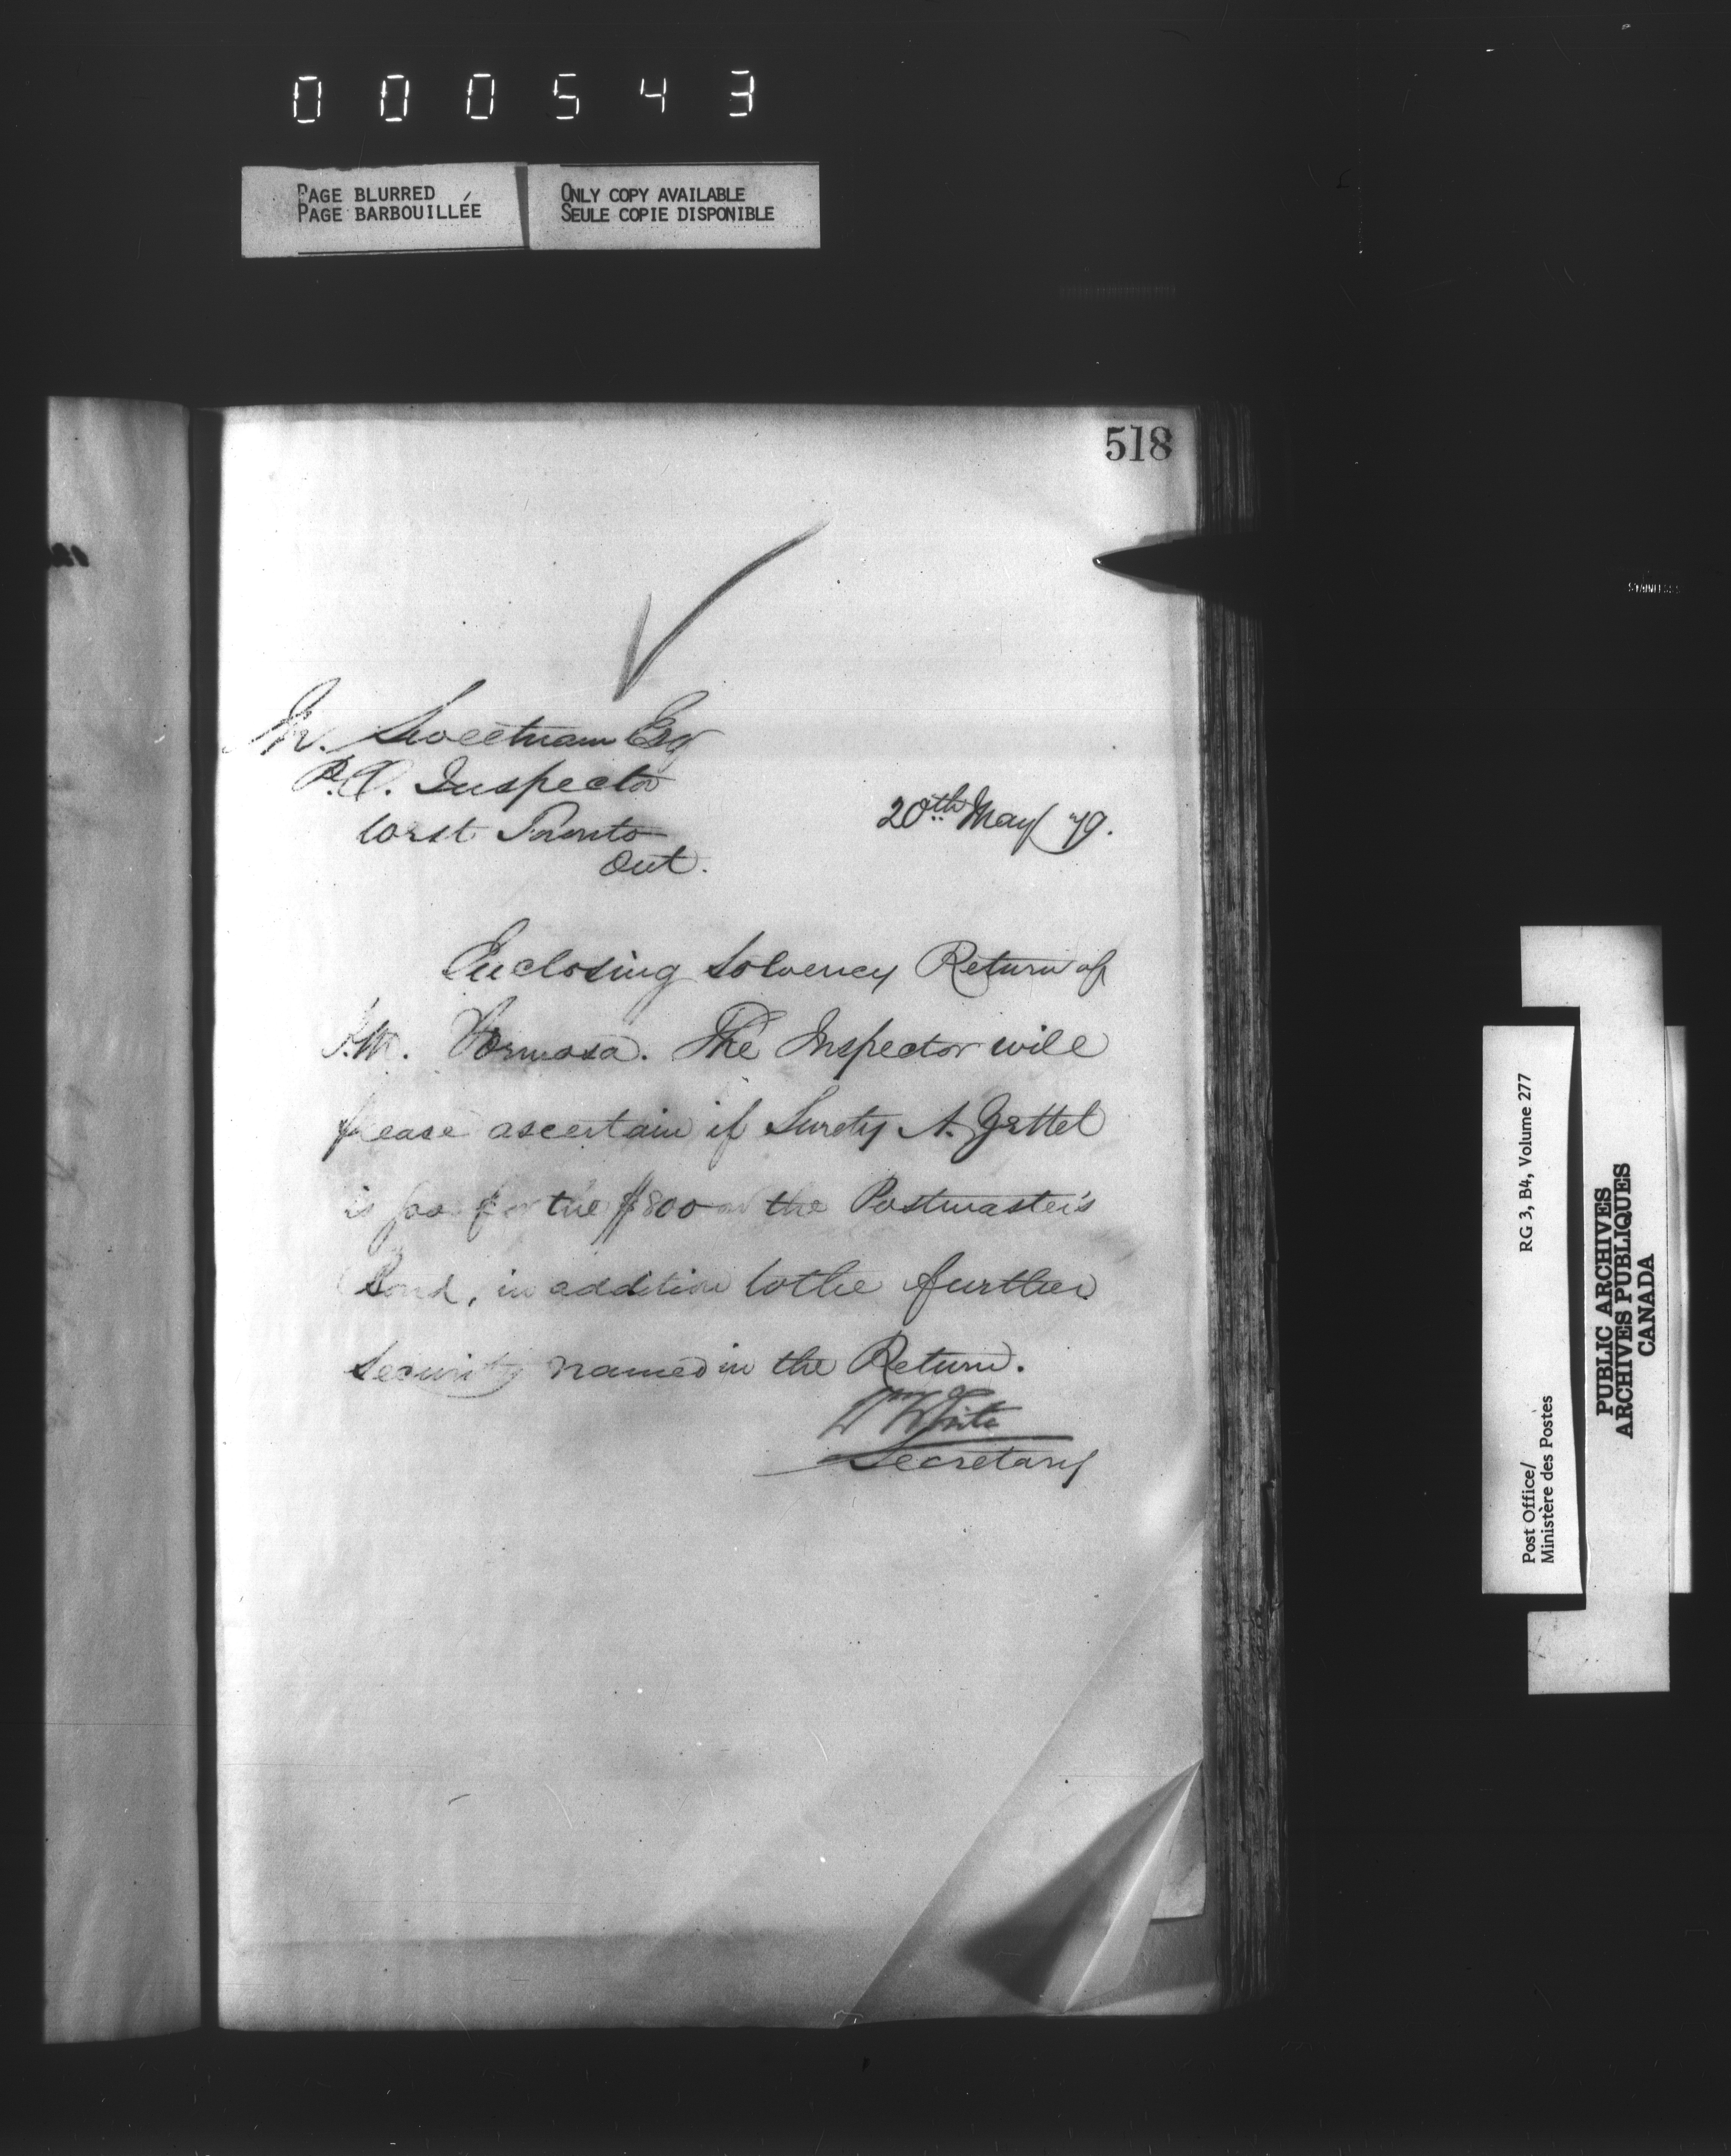 000543
PAGE BLURRED
PAGE BARBOUILLÉE
ONLY COPY AVAILABLE
SEULE COPIE DISPONIBLE
518
M. Sweetnam Esq
P.O. Inspector
West Toronto
Ont.
20th May 79.
Enclosing Solvency Return of
P.M. Formosa. The Inspector will
please ascertain if Surety A.
is good for the $800 on the Postmaster's
Bond, in addition to the further
Security named in the Return.
W White
Secretary
STAINLESS
Post Office/
Ministère des Postes
RG 3, B4, Volume 277
PUBLIC ARCHIVES
ARCHIVES PUBLIQUES
CANADA